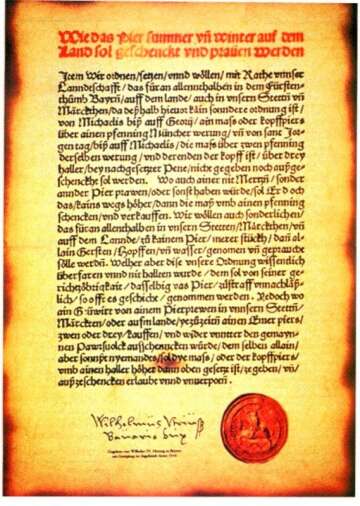 Wie das Pier summer vñ winter auf dem
Land sol geschenckt vnd prauen werden
Item Wir ordnen/setzen/vnnd wöllen/mit Rathe vnnser
Lanndeschafft/das für an allennthalben in dem Fürsten-
thůmb Bayrñ/auff dem lande/auch in vnsern Stettñ vñ
Märckthen/da deßhalb hieuor kain sondere ordnung ist/
von Michaelis biß auff Georij/ain mass oder kopffpiers
über ainen pfenning Müncher werung/vñ von sant Jor-
gentag/biß auff Michaelis/die mass über zwen pfenning
derselben werung/vnd derenden der kopff ist/über drey
haller/bey nachgesetzter Pene/nicht gegeben noch außge-
schenckht sol werden. Wo auch ainer nit Mertzñ/sonder
annder Pier prawen/oder sonst haben würde/sol Er doch
das/kains wegs höher/dann die mass vmb ainen pfenning
schencken/vnd verkauffen. Wir wöllen auch sonderlichen/
das für an allenthalben in vnsern Stetten/Märckthen/vñ
auff dem Lannde/zů kainem Pier/merer stückh/dañ al-
lain Gersten/Hopffen/vñ wasser/genomen vñ gepraucht
sölle werdñ. Welher aber dise vnsere Ordnung wissentlich
überfaren vnnd nit hallten wurde/dem sol von seiner ge-
richtzöbrigkait/dasselbig vas Pier/zůstraff vnnachläß-
lich/so offt es geschicht/genommen werden. Yedoch wo
ain Gůwirt von ainem Pierprewen in vnnsern Stettñ/
Märckten/oder aufm lande/yezůzeitñ ainen Emer piers/
zwen oder drey/kauffen/vnd wider vnnter den gemaynn-
nen Pawrsuolck ausschencken würde/dem selben allain/
aber sonnst nyemandes/sol dye mass/oder der kopffpiers/
vmb ainen haller höher dann oben gesetzt ist/ze geben/vñ/
außzeschencken erlaubt vnnd vnuerpotñ.
Wilhelmus